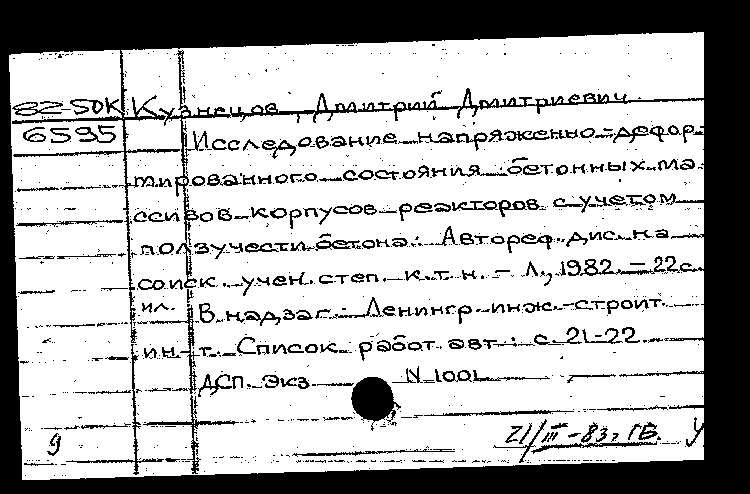 82-5ДК Кузнецов, Дмитрий Дмитриевич
6595 Исследование напряженно-дефор-
мированного состояния бетонных ма
ссивов корпусов реакторов с учетом
ползучести бетона: Автореф. дис. на
соиск. учен. степ. к.т.н. - Л., 1982. - 22с.
ил. В надзаг.: Ленингр. инж.-строит.
ин-т. Список работ авт.: с. 21-22
ДСП. Экз N 1001
9 21/III-83г. ГБ. У